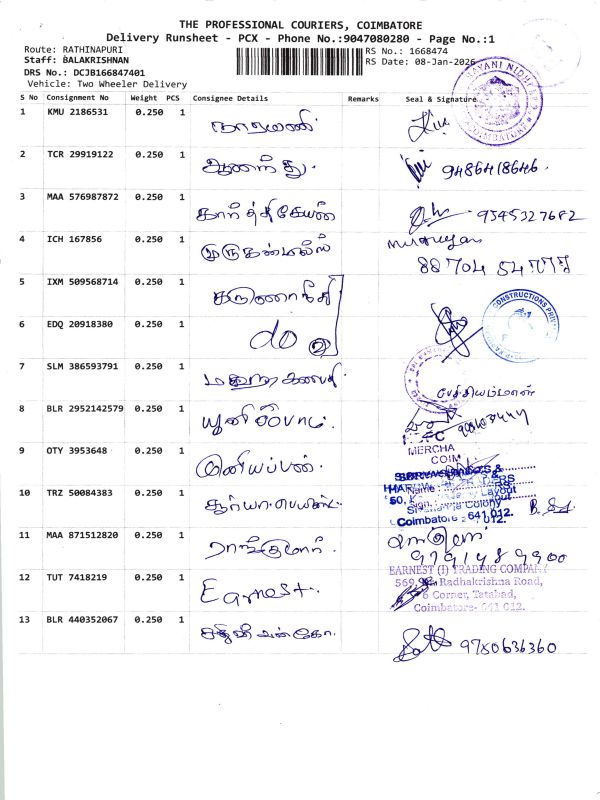 THE PROFESSIONAL COURIERS, COIMBATORE
Delivery Runsheet - PCX - Phone No.:9047080280 - Page No.:1
Route: RATHINAPURI
RS No.: 1668474
Staff: BALAKRISHNAN
RS Date: 08-Jan-2026
DRS No.: DCJB166847401
Vehicle: Two Wheeler Delivery
S No Consignment No Weight PCS Consignee Details Remarks Seal & Signature
1 KMU 2186531 0.250 1 நாராயணி
COIMBATORE
2 TCR 29919122 0.250 1 ஆனந்து. 9486418646.
3 MAA 576987872 0.250 1 கார்த்திகேயன் 9345327682
4 ICH 167856 0.250 1 முருகன் மெல்ஸ் murugan
88704 54777
5 IXM 509568714 0.250 1
6 EDQ 20918380 0.250 1 do ②
CONSTRUCTIONS
7 SLM 386593791 0.250 1
8 BLR 2952142579 0.250 1
MERCHA
COIM
9 OTY 3953648 0.250 1 இனியப்பன்.
10 TRZ 50084383 0.250 1
Layout
Colony
Coimbatore - 641 012.
11 MAA 871512820 0.250 1 ராம்குமார்
9791489900
12 TUT 7418219 0.250 1 Earnest.
EARNEST (I) TRADING COMPANY
569, Radhakrishna Road,
6 Corner, Tatabad,
Coimbatore- 641 012.
13 BLR 440352067 0.250 1 9750636360